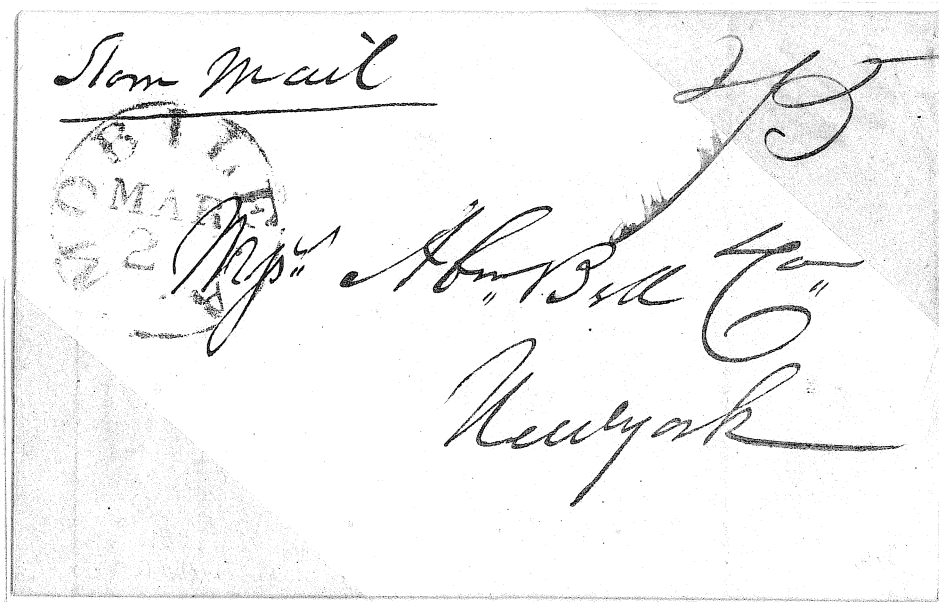 Slom Mail
25
MOBILE
MAR
2
A
Messrs Abm Bell Co
Newyork